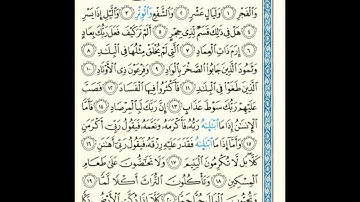 وَالْفَجْرِ ١ وَلَيَالٍ عَشْرٍ ٢ وَالشَّفْعِ وَالْوَتْرِ ٣ وَاللَّيْلِ إِذَا يَسْرِ
٤ هَلْ فِي ذَٰلِكَ قَسَمٌ لِّذِي حِجْرٍ ٥ أَلَمْ تَرَ كَيْفَ فَعَلَ رَبُّكَ بِعَادٍ
٦ إِرَمَ ذَاتِ الْعِمَادِ ٧ الَّتِي لَمْ يُخْلَقْ مِثْلُهَا فِي الْبِلَٰدِ ٨
وَثَمُودَ الَّذِينَ جَابُوا الصَّخْرَ بِالْوَادِ ٩ وَفِرْعَوْنَ ذِي الْأَوْتَادِ ١٠
الَّذِينَ طَغَوْا فِي الْبِلَٰدِ ١١ فَأَكْثَرُوا فِيهَا الْفَسَادَ ١٢ فَصَبَّ
عَلَيْهِمْ رَبُّكَ سَوْطَ عَذَابٍ ١٣ إِنَّ رَبَّكَ لَبِالْمِرْصَادِ ١٤ فَأَمَّا
الْإِنسَٰنُ إِذَا مَا ابْتَلَىٰهُ رَبُّهُ فَأَكْرَمَهُ وَنَعَّمَهُ فَيَقُولُ رَبِّي أَكْرَمَنِ
١٥ وَأَمَّا إِذَا مَا ابْتَلَىٰهُ فَقَدَرَ عَلَيْهِ رِزْقَهُ فَيَقُولُ رَبِّي أَهَٰنَنِ ١٦
كَلَّا بَل لَّا تُكْرِمُونَ الْيَتِيمَ ١٧ وَلَا تَحَٰضُّونَ عَلَىٰ طَعَامِ
الْمِسْكِينِ ١٨ وَتَأْكُلُونَ التُّرَاثَ أَكْلًا لَّمًّا ١٩